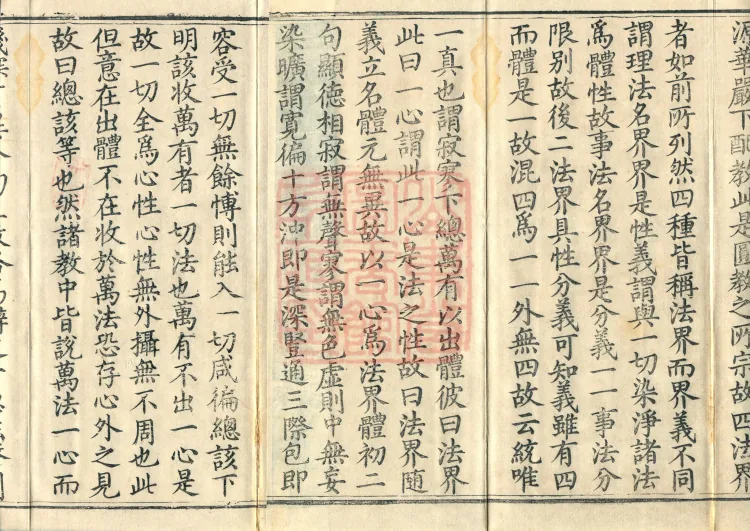 源華嚴下配教此是圓教之所宗故四法界
者如前所列然四種皆稱法界而界義不同
謂理法名界界是性義謂與一切染淨諸法
爲體性故事法名界界是分義一一事法分
限別故後二法界具性分義可知義雖有四
而體是一故混四爲一一外無四故云統唯
一真也謂寂寥下總萬有以出體彼曰法界
此曰一心謂此一心是法之性故曰法界隨
義立名體元無異故以一心爲法界體初二
句顯德相寂謂無聲寥謂無色虛則中無妄
染曠謂寬徧十方沖即是深豎通三際包即
容受一切無餘博則能入一切咸徧總該下
明該收萬有者一切法也萬有不出一心是
故一切全爲心性心性無外攝無不周也此
但意在出體不在收於萬法恐存心外之見
故曰總該等也然諸教中皆說萬法一心而